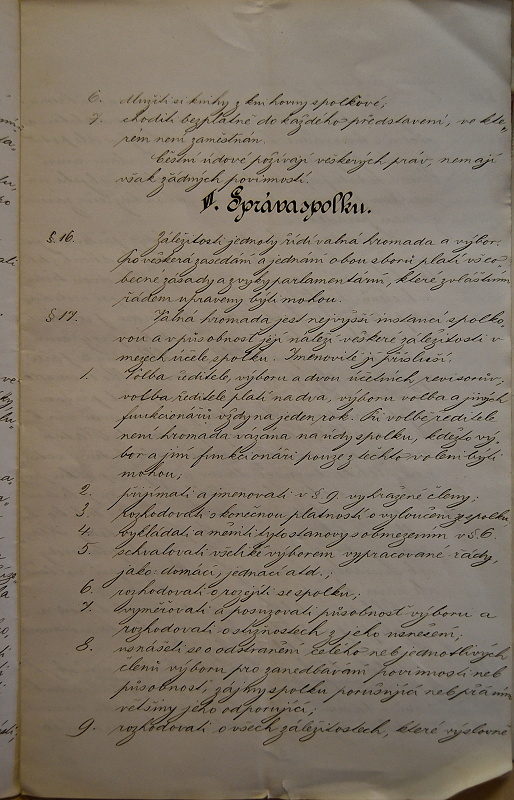 6. užíti si knihy z knihovny spolkové;
7. choditi bezplatně do každého představení, ve kte„
rém není zaměstnán.
Čestní údové požívají veškerých práv, nemají
však žádných povinností.
VI. Správa spolku.
§ 16. Záležitosti jednoty řídí valná hromada a výbor.
Pro veškerá zasedání a jednání obou sborů platí všeo„
becné zásady a zvyky parlamentární, které zvláštním
řádem upraveny býti mohou.
§ 17. Valná hromada jest nejvyšší instancí spolko„
vou a v působnost její náleží veškeré záležitosti v
mezech účele spolku. Jmenovitě jí přísluší:
1. Volba ředitele, výboru a dvou účetních revisorův;
volba ředitele platí na dva, výboru volba a jiných
funkcionářů vždy na jeden rok. Při volbě ředitele
není hromada vázána na údy spolku, kdežto vý„
bor a jiní funkcionáři pouze z těchto voleni býti
mohou;
2. přijímati a jmenovati v § 9. vytčené členy;
3. rozhodovati s konečnou platností o vyloučení ze spolku
4. vykládati a měniti tyto stanovy s obmezením v § 6.
5. schvalovati všeliké výborem vypracované řády,
jako: domácí, jednací atd.;
6. rozhodovati o rozejití se spolku;
7. vyměřovati a posuzovati působnost výboru a
rozhodovati o stížnostech z jeho usnešení;
8. usnášeti se o odstranění celého neb jednotlivých
členů výboru pro zanedbávání povinností neb
působnost, zájmy spolku porušující neb přáním
většiny jeho odporující;
9. rozhodovati o všech záležitostech, které výslovně